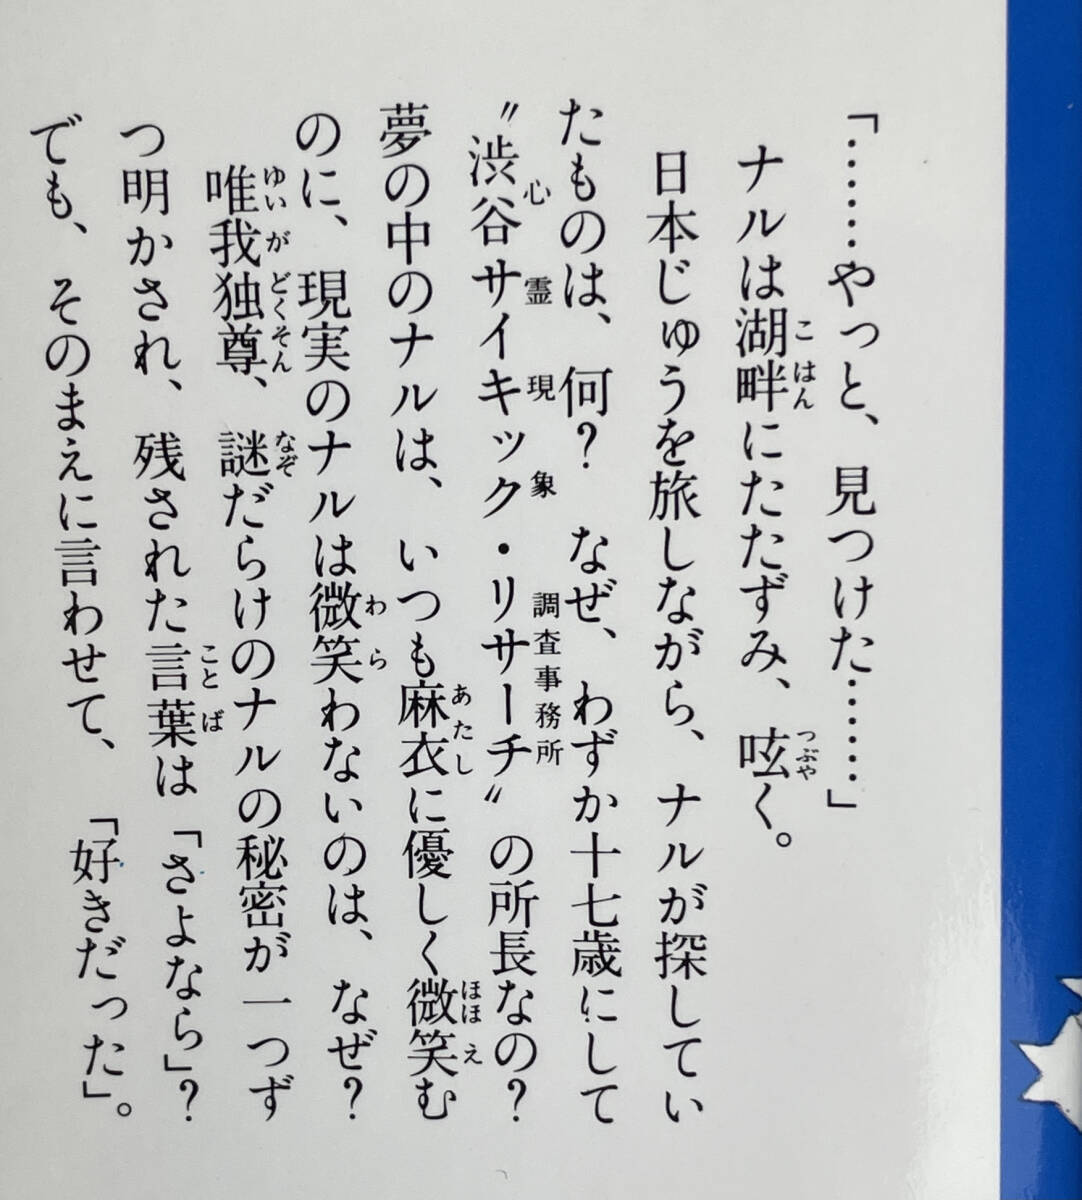 「………やっと、見つけた………」
ナルは湖畔にたたずみ、呟く。
日本じゅうを旅しながら、ナルが探してい
たものは、何？　なぜ、わずか十七歳にして
〝渋谷サイキック・リサーチ〟の所長なの？
夢の中のナルは、いつも麻衣に優しく微笑む
のに、現実のナルは微笑わないのは、なぜ？
唯我独尊、謎だらけのナルの秘密が一つず
つ明かされ、残された言葉は「さよなら」？
でも、そのまえに言わせて、「好きだった」。
こはん
つぶや
心霊現象
調査事務所
あたし
ほほえ
わら
ゆいがどくそん
なぞ
ことば